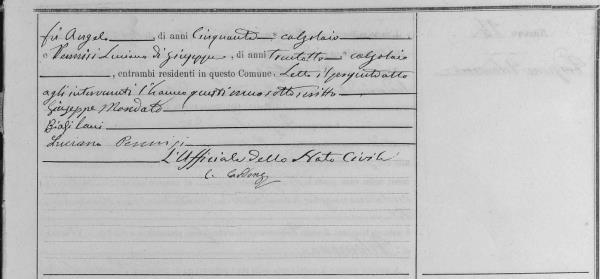 fu Angelo, di anni Cinquanta calzolaio
e Pennisi Luciano di Giuseppe, di anni trentotto calzolaio
, entrambi residenti in questo Comune. Letto il presente atto
agli intervenuti l'hanno questi meco sotto scritto
Giuseppe Mondato
Biagi
Luciano Pennisi
L'Uffiziale dello Stato Civile